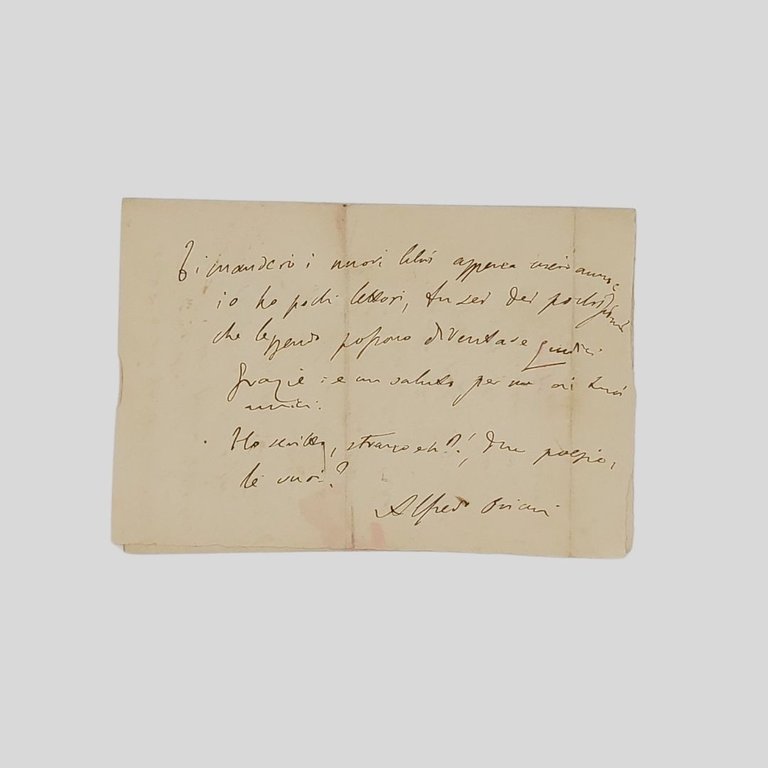 Ti manderò i nuovi libri appena usciranno:
io ho pochi lettori, tu sei dei pochissimi
che leggendo possono diventare giudici.
Grazie: e un saluto per me ai tuoi
amici.
Ho scritto, strano eh?!, due poesie,
le vuoi?
Alfredo Oriani